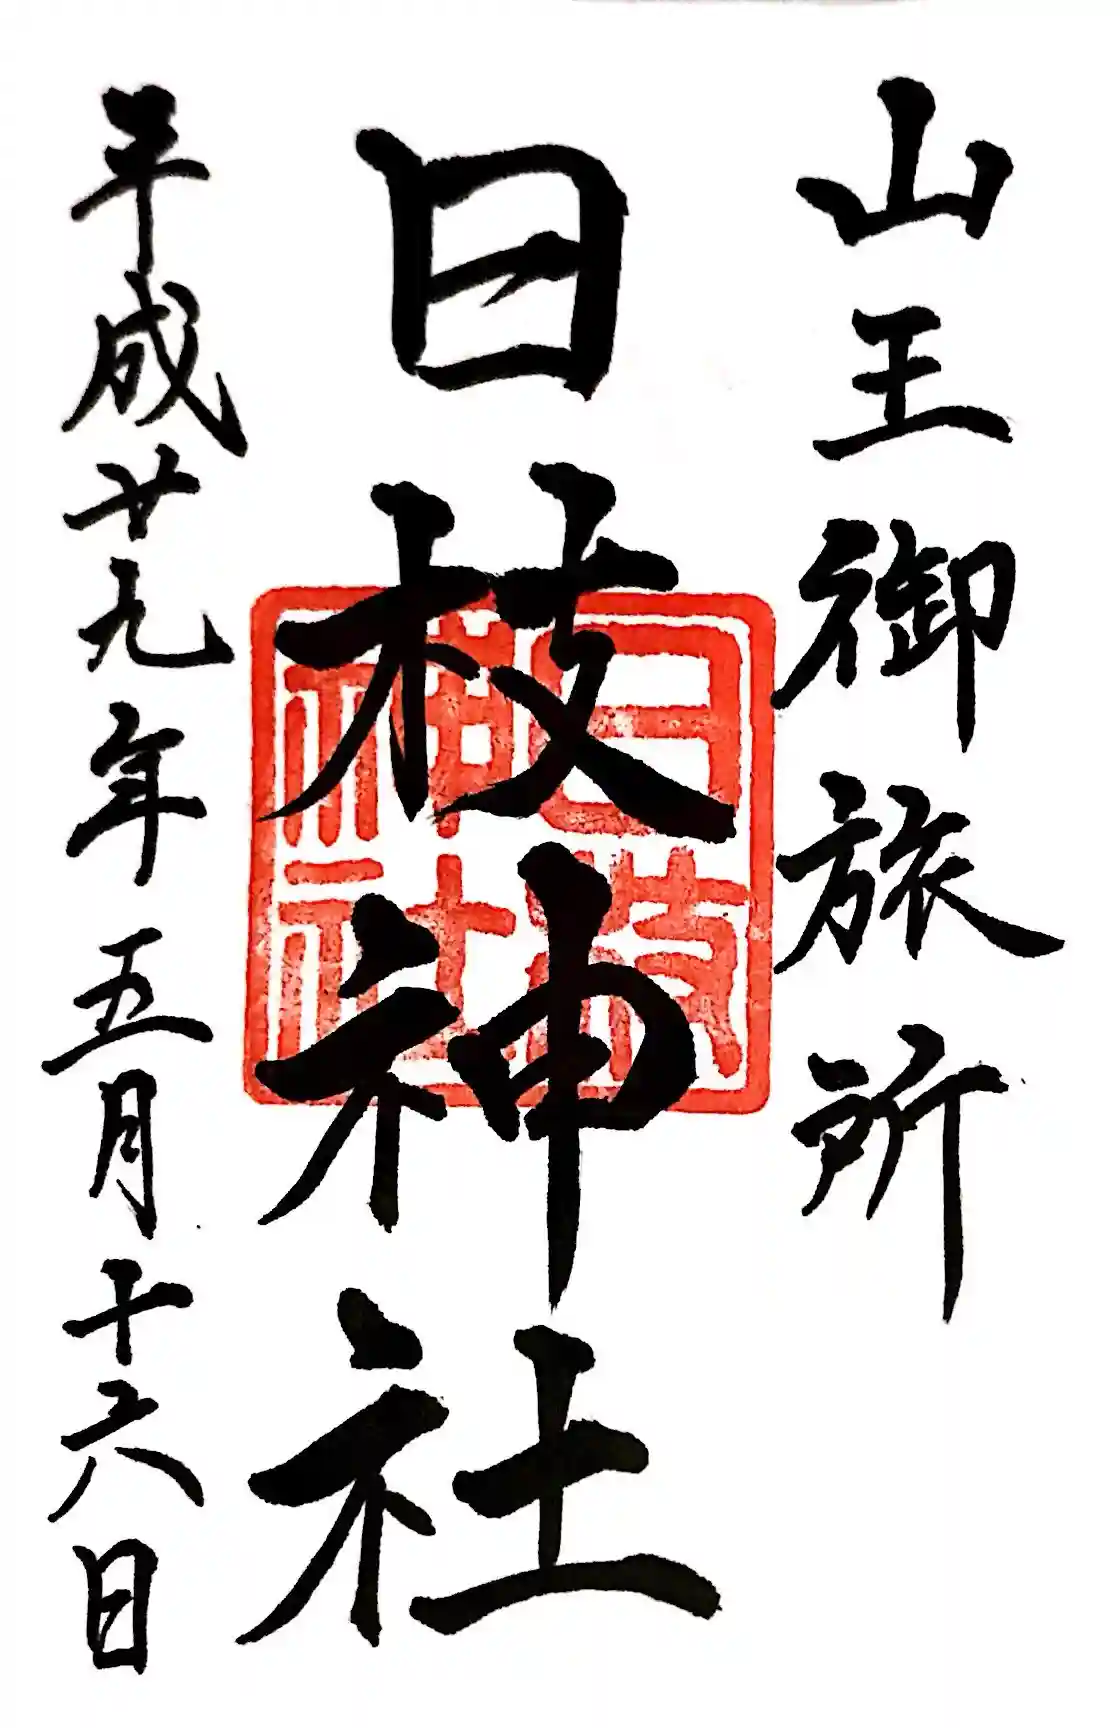 山王御旅所
日枝神社
日枝
神社
平成廿九年五月十六日